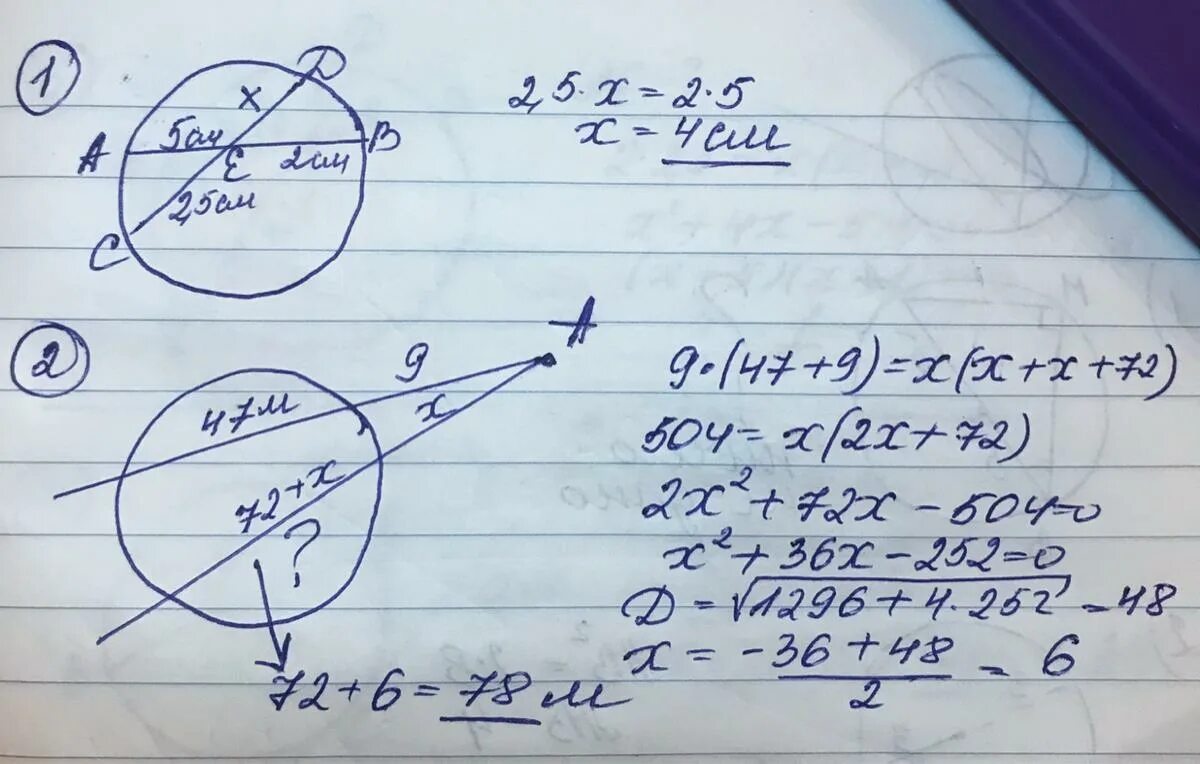 1
D
x
A 5см B
E 2см
2,5см
C
2,5·x = 2·5
x = 4см
2
A
9
47м x
72+x
?
72+6 = 78м
9·(47+9)=x(x+x+72)
504=x(2x+72)
2x²+72x-504=0
x²+36x-252=0
D=√1296+4·252=48
x = -36+48/2 = 6